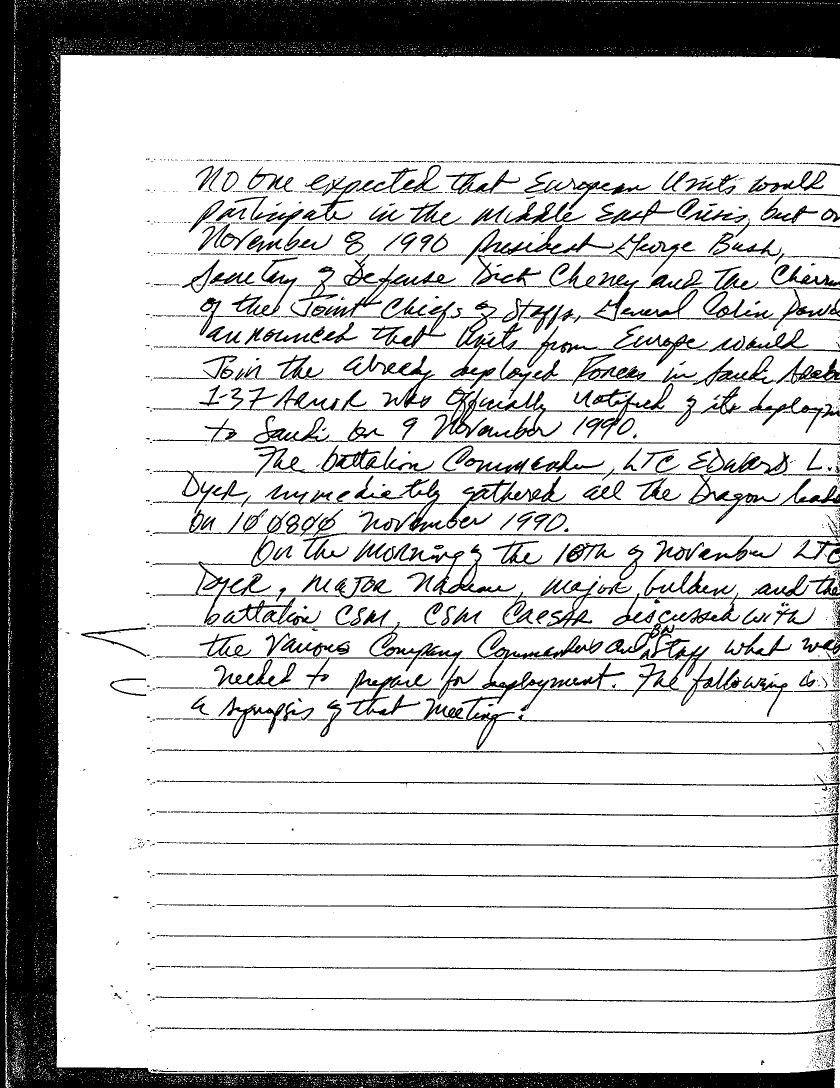 No one expected that European Units would
participate in the Middle East Crisis, but on
November 8, 1990 President George Bush,
Secretary of Defense Dick Cheney and the Chairm
of the Joint Chiefs of Staffs, General Colin Powe
announced that Units from Europe would
Join the already deployed Forces in Saudi Arab
1-37 Armor was Officially notified of its deploym
to Saudi on 9 November 1990.
The battalion Commander, LTC Edward L.
Dyer, immediately gathered all the Dragon lead
on 100800 November 1990.
On the Morning of the 10th of November LTC
Dyer, Major Nadeau, Major Gulden, and the
battalion CSM, CSM CAESAR discussed with
the Various Company Commanders and BN Staff what was
needed to prepare for deployment. The following is
a synopsis of that Meeting: